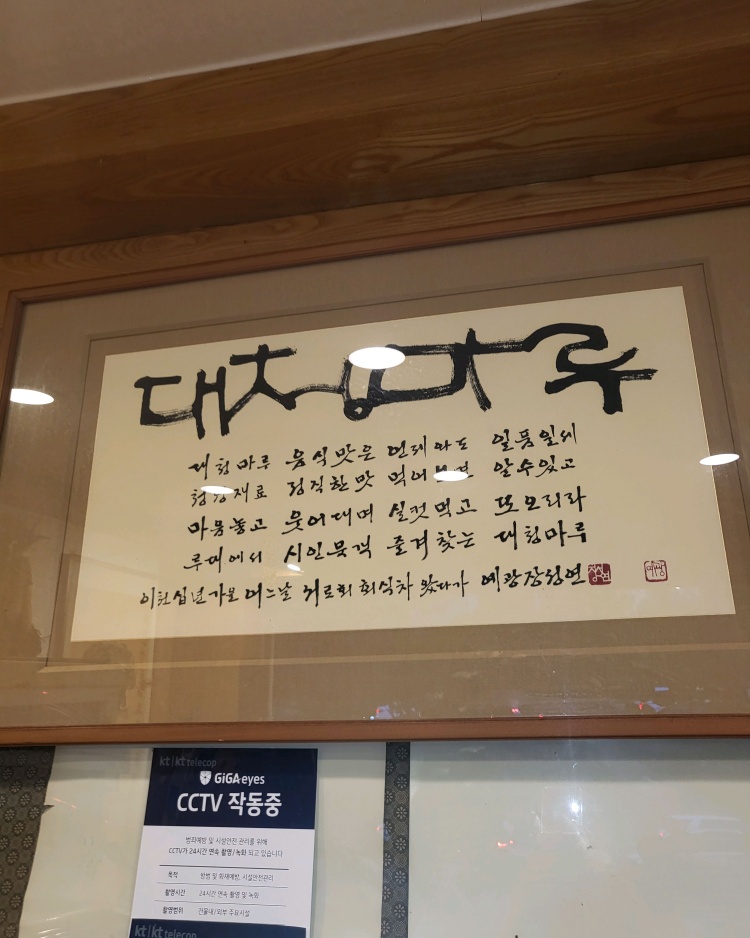 대청마루
대청마루 음식맛은 언제와도 일품일세
청정재료 정직한맛 먹어보면 알수있고
마음놓고 웃어대며 실컷먹고 또오리라
루머에서 시인묵객 즐겨찾는 대청마루
이천십년가을 어느날 회식차 왔다가 예광장성연
kt kt telecop
GiGA eyes
CCTV 작동중
범죄예방 및 시설안전 관리를 위해
CCTV가 24시간 연속 촬영/녹화 되고 있습니다
목적 방범 및 화재예방, 시설안전관리
촬영시간 24시간 연속 촬영 및 녹화
촬영범위 건물내/외부 주요시설
kt kt telecop